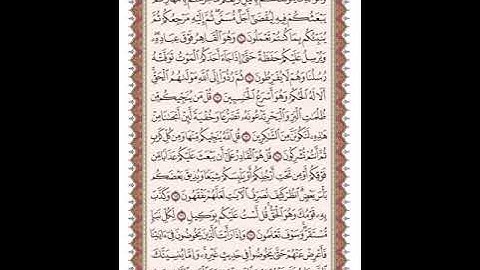 يَبْعَثُكُمْ فِيهِ لِيُقْضَىٰٓ أَجَلٌ مُّسَمًّى ثُمَّ إِلَيْهِ مَرْجِعُكُمْ ثُمَّ
يُنَبِّئُكُم بِمَا كُنتُمْ تَعْمَلُونَ ۝ وَهُوَ ٱلْقَاهِرُ فَوْقَ عِبَادِهِۦ
وَيُرْسِلُ عَلَيْكُمْ حَفَظَةً حَتَّىٰٓ إِذَا جَآءَ أَحَدَكُمُ ٱلْمَوْتُ تَوَفَّتْهُ
رُسُلُنَا وَهُمْ لَا يُفَرِّطُونَ ۝ ثُمَّ رُدُّوٓا۟ إِلَى ٱللَّهِ مَوْلَىٰهُمُ ٱلْحَقِّ
أَلَا لَهُ ٱلْحُكْمُ وَهُوَ أَسْرَعُ ٱلْحَـٰسِبِينَ ۝ قُلْ مَن يُنَجِّيكُم مِّن
ظُلُمَـٰتِ ٱلْبَرِّ وَٱلْبَحْرِ تَدْعُونَهُۥ تَضَرُّعًا وَخُفْيَةً لَّئِنْ أَنجَىٰنَا مِنْ
هَـٰذِهِۦ لَنَكُونَنَّ مِنَ ٱلشَّـٰكِرِينَ ۝ قُلِ ٱللَّهُ يُنَجِّيكُم مِّنْهَا وَمِن كُلِّ كَرْبٍ
ثُمَّ أَنتُمْ تُشْرِكُونَ ۝ قُلْ هُوَ ٱلْقَادِرُ عَلَىٰٓ أَن يَبْعَثَ عَلَيْكُمْ عَذَابًا مِّن
فَوْقِكُمْ أَوْ مِن تَحْتِ أَرْجُلِكُمْ أَوْ يَلْبِسَكُمْ شِيَعًا وَيُذِيقَ بَعْضَكُم
بَأْسَ بَعْضٍ ٱنظُرْ كَيْفَ نُصَرِّفُ ٱلْـَٔايَـٰتِ لَعَلَّهُمْ يَفْقَهُونَ ۝ وَكَذَّبَ
بِهِۦ قَوْمُكَ وَهُوَ ٱلْحَقُّ قُل لَّسْتُ عَلَيْكُم بِوَكِيلٍ ۝ لِّكُلِّ نَبَإٍ
مُّسْتَقَرٌّ وَسَوْفَ تَعْلَمُونَ ۝ وَإِذَا رَأَيْتَ ٱلَّذِينَ يَخُوضُونَ فِىٓ ءَايَـٰتِنَا
فَأَعْرِضْ عَنْهُمْ حَتَّىٰ يَخُوضُوا۟ فِى حَدِيثٍ غَيْرِهِۦ وَإِمَّا يُنسِيَنَّكَ